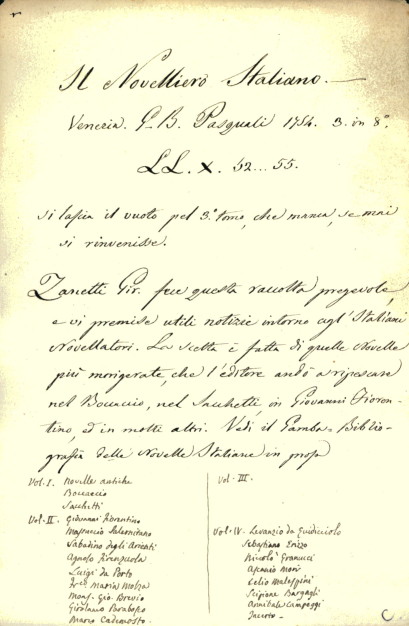 Il Novelliero Italiano.
Venezia. G. B. Pasquali 1754. 3. in 8°.
LL. X. 52...55.
si lascia il vuoto pel 3° tomo, che manca, se mai
si rinvenisse.
Zanetti Gir. fece questa raccolta pregevole,
e vi premise utili notizie intorno agl'Italiani
Novellatori. La scelta è fatta di quelle Novelle
più morigerate, che l'editore andò a ripescare
nel Bocaccio, nel Sacchetti, in Giovanni Fioren-
tino, ed in molti altri. Vedi il Gamba = Biblio-
grafia delle Novelle Italiane in prosa
Vol. I. Novelle antiche
Boccaccio
Sacchetti
Vol. II. Giovanni Fiorentino
Massuccio Salernitano
Sabadino degli Arienti
Agnolo Firenzuola
Luigi da Porto
Fr.co Maria Molza
Mons. Gio. Brevio
Girolamo Parabosco
Marco Cademosto.
Vol. III.
Vol. IV. Levanzio da Guidicciolo
Sebastiano Erizzo
Nicolò Granucci
Ascanio Mori
Celio Malespini
Scipione Bargagli
Annibale Campeggi
Incerto.